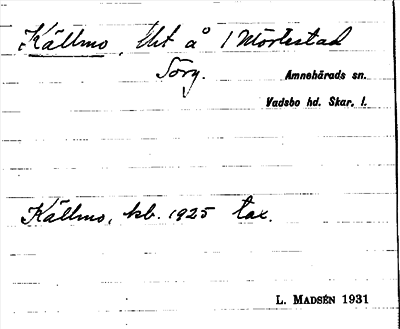 Källmo, lht å 1 Mörtestad
Sörg.
Amnehärads sn.
Vadsbo hd. Skar. l.
Källmo, kb. 1925 tax.
L. MADSÉN 1931